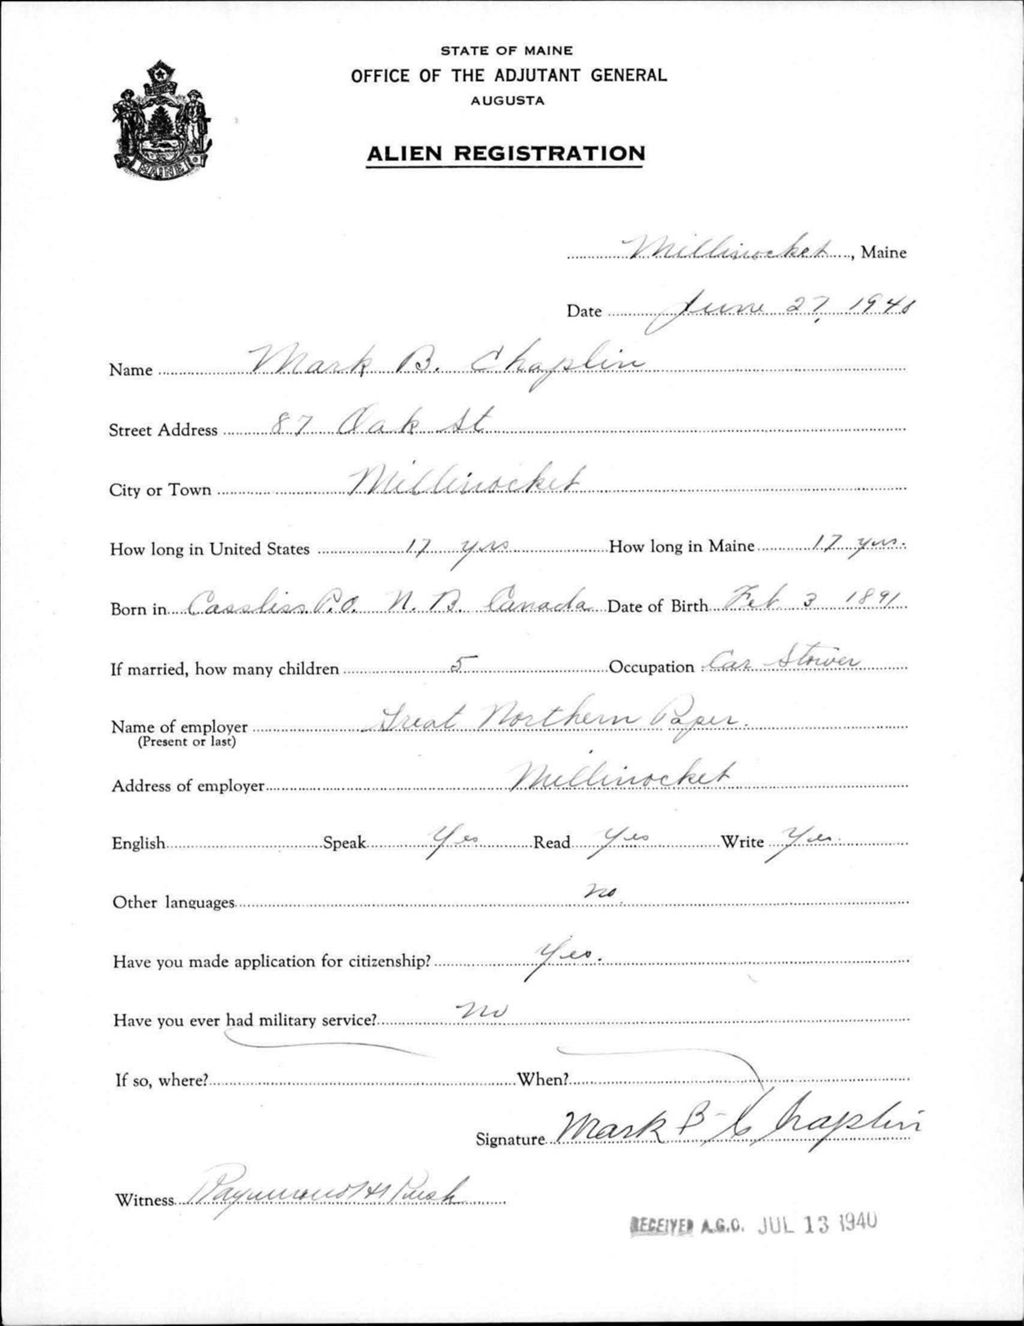 STATE OF MAINE
OFFICE OF THE ADJUTANT GENERAL
AUGUSTA
ALIEN REGISTRATION
MAINE
Millinocket, Maine
Date June 27, 1940
Name Mark B. Chaplin
Street Address 87 Oak St
City or Town Millinocket
How long in United States 17 yrs How long in Maine 17 yrs.
Born in P.O. N. B. Canada Date of Birth Feb 3 1891
If married, how many children 5 Occupation Car Stower
Name of employer Great Northern Paper.
(Present or last)
Address of employer Millinocket
English Speak Yes Read Yes Write Yes.
Other languages no.
Have you made application for citizenship? Yes.
Have you ever had military service? No
If so, where? When?
Signature Mark B Chaplin
Witness Raymond H Rush
RECEIVED A.G.O. JUL 13 1940